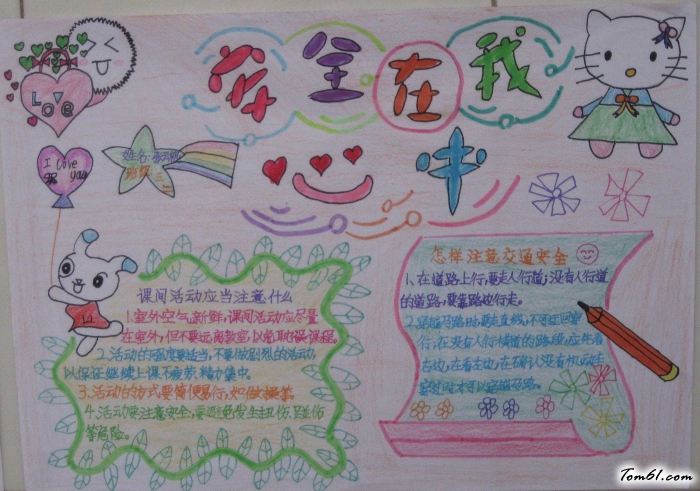 安全在我
心中
LOVE
I Love
you
姓名:
班级:三
课间活动应当注意什么
1.室外空气新鲜,课间活动应尽量
在室外,但不要远离教室,以免耽误课程
2.活动的强度要适当,不要做剧烈的活动,
以保证继续上课不疲劳,精力集中。
3.活动的方式要简便易行,如做操等。
4.活动要注意安全,要避免发生扭伤,碰伤
等危险。
怎样注意交通安全
1、在道路上行,要走人行道;没有人行道
的道路,要靠路边行走。
2.穿越马路时,要走直线,不可迂回穿
行,在没有人行横道的路段,应先看
右边,在看左边,在确认没有机动车
才可以穿越马路。
Tom61.com